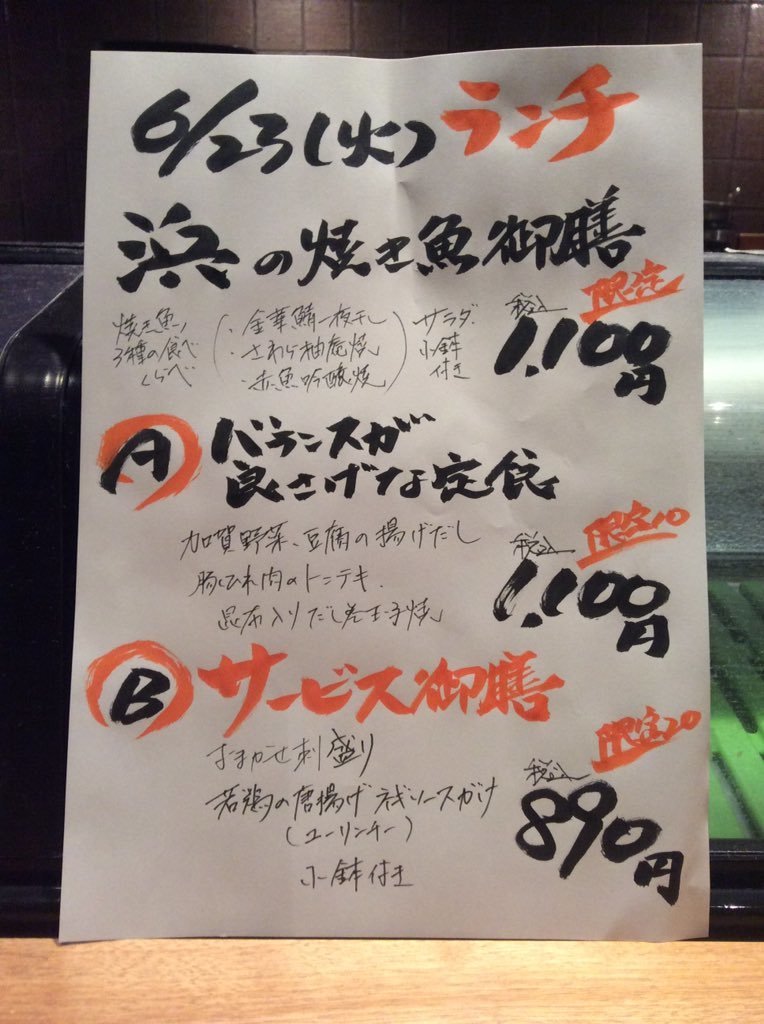 6/23(火) ランチ
浜の焼き魚御膳
限定
焼き魚
3種の食べ
くらべ
(・金華鯖一夜干し
・さわら柚庵焼
・赤魚吟醸焼)
サラダ、
小鉢
付き
税込
1,100円
A バランスが
良さげな定食
加賀野菜、豆腐の揚げだし
豚ひれ肉のトンテキ、
昆布入りだし巻玉子焼
限定10
税込
1,100円
B サービス御膳
おまかせ刺盛り
若鶏の唐揚げネギソースがけ
(ユーリンチー)
小鉢付き
限定20
税込
890円